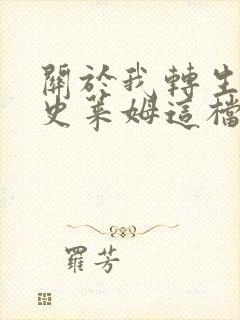 關於我轉生
史萊姆這檔
羅芳